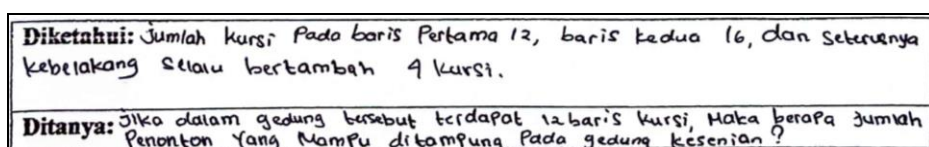 Diketahui: Jumlah kursi Pada baris Pertama 12, baris kedua 16, dan seterusnya
kebelakang selalu bertambah 4 kursi.
Ditanya: Jika dalam gedung tersebut terdapat 12 baris kursi, Maka berapa Jumlah
Penonton Yang Mampu ditampung Pada gedung kesenian?